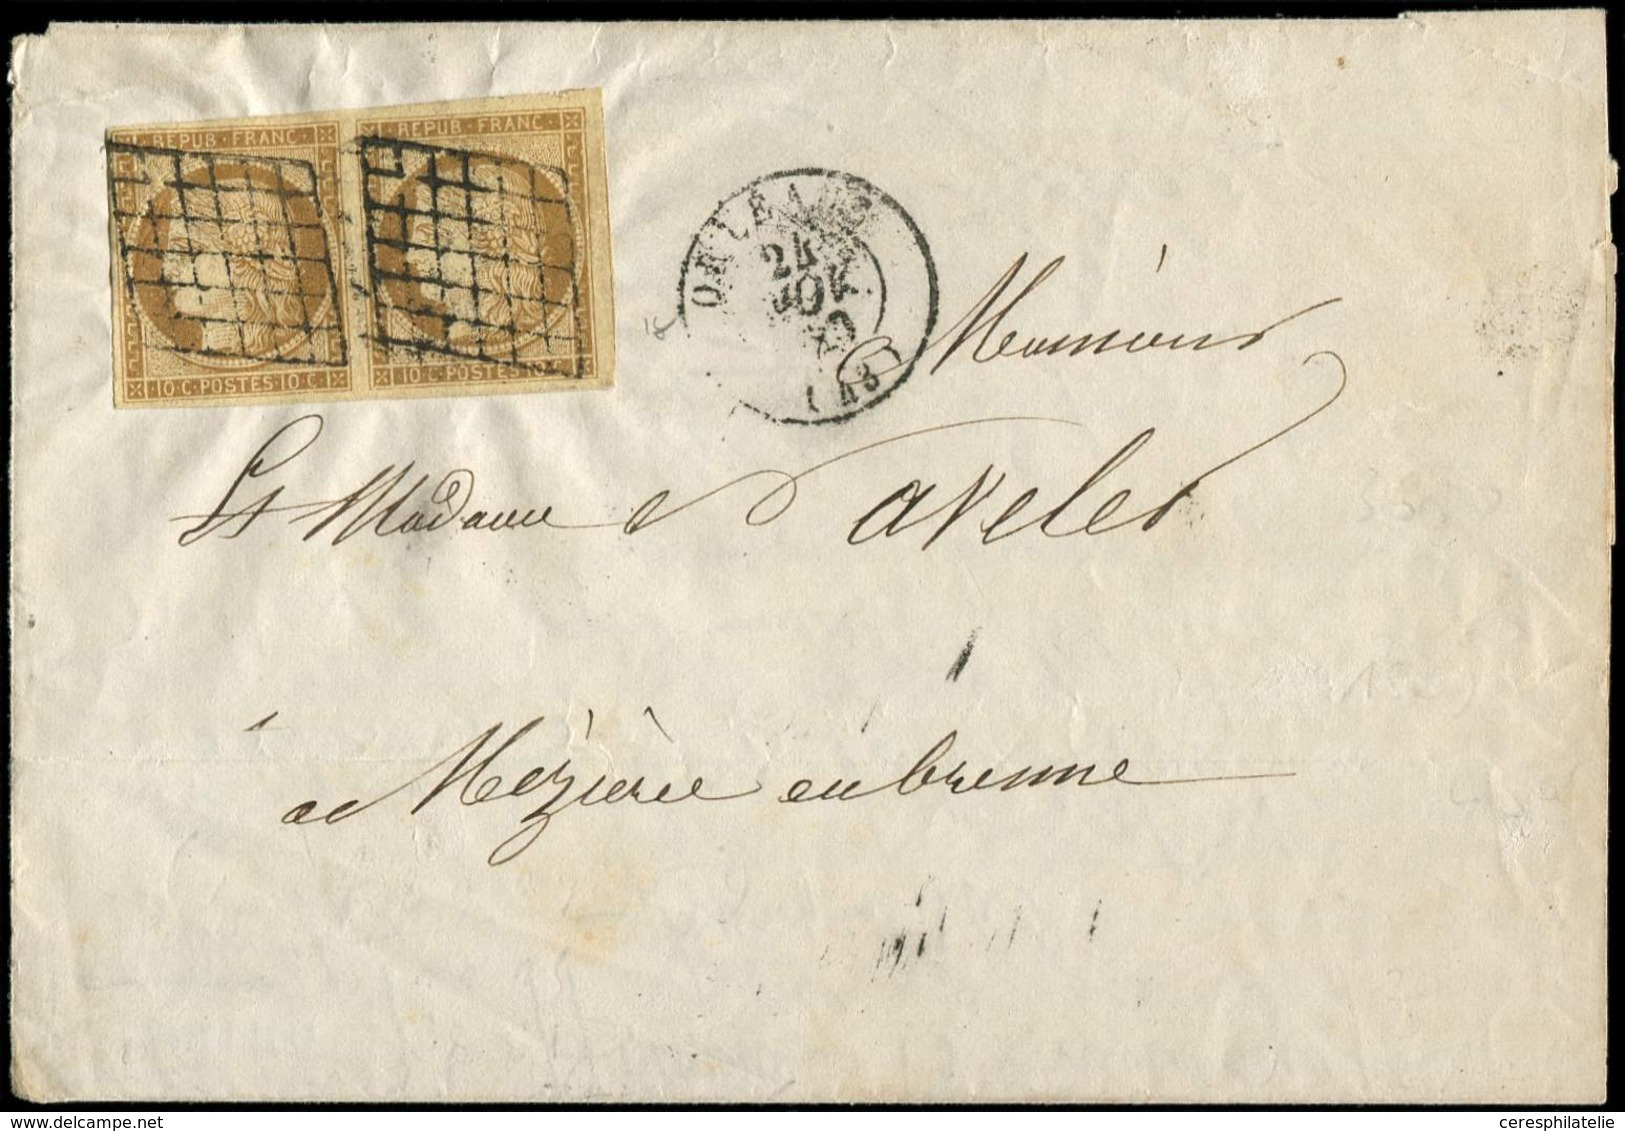 REPUB · FRANC · REPUB · FRANC ·
10 · C · POSTES · 10 · C · 10 · C · POSTES · 10
ORLEANS
24
NOV
50
(43)
Monsieur
Et Madame Naveler
à Mézière en brenne
delcampe.net
ceresphilatelie